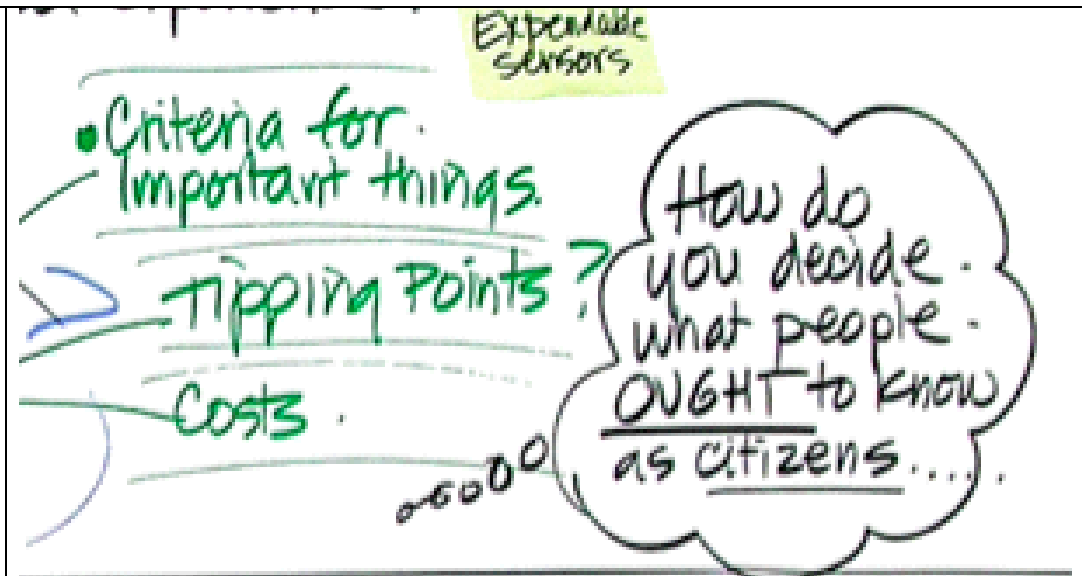 Expendable
sensors
• Criteria for.
Important things.
Tipping Points?
Costs.
How do
you decide.
what people.
OUGHT to know
as citizens.....